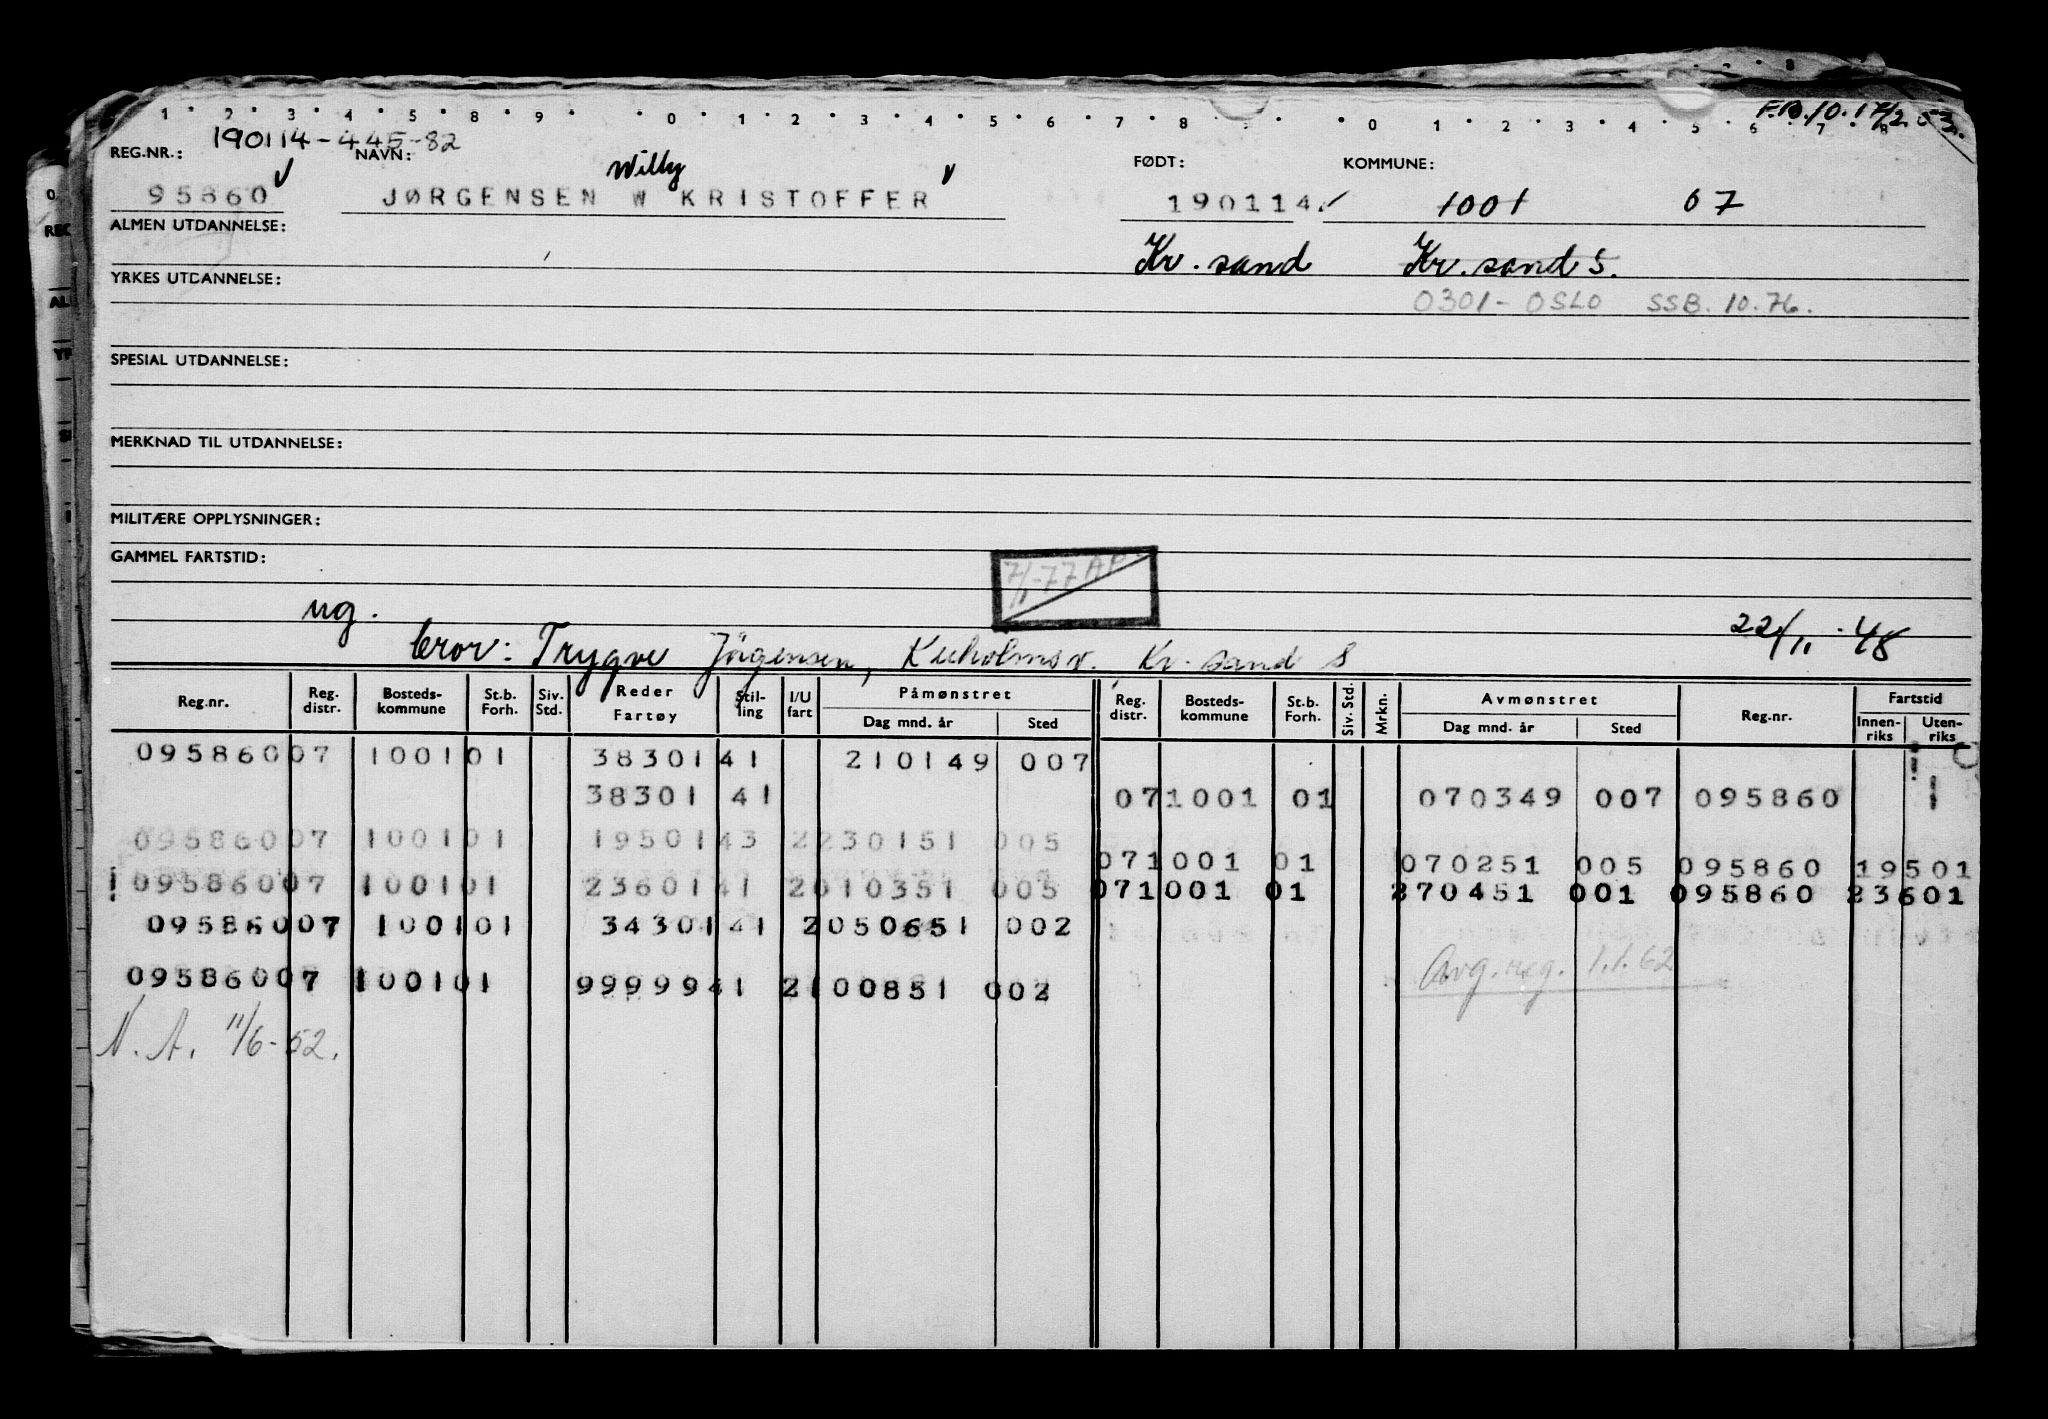 1 2 3 4 5 8 9 0 1 2 3 4 5 6 7 8 0 1 2 3 4 5 6 7 8
190114-445-82
REG.NR.: NAVN: FØDT: KOMMUNE:
Willy
95860 JØRGENSEN W KRISTOFFER 190114 1001 07
ALMEN UTDANNELSE:
Kr. sand Kr. sand S.
YRKES UTDANNELSE:
0301- OSLO SSB. 10.76.
SPESIAL UTDANNELSE:
MERKNAD TIL UTDANNELSE:
MILITÆRE OPPLYSNINGER:
GAMMEL FARTSTID:
ug.
22/11-48
bror: Trygve Jörgensen, Kr. sand S
Reg.nr. Reg. distr. Bosteds-kommune St.b. Forh. Siv. Std. Reder Fartøy Stil-ling I/U fart Påmønstret Dag mnd. år Sted Reg. distr. Bosteds-kommune St.b. Forh. Siv. Std. Mrkn. Avmønstret Dag mnd. år Sted Reg.nr. Fartstid Innen-riks Uten-riks
095860 07 1001 01 38301 41 210149 007
38301 41 07 1001 01 070349 007 095860
095860 07 1001 01 19501 43 2 230151 005
07 1001 01 070251 005 095860 19501
095860 07 1001 01 23601 41 2 010351 005 07 1001 01 270451 001 095860 23601
095860 07 1001 01 34301 41 2 050651 002
Avg. reg. 1.1.62
095860 07 1001 01 99999 41 2 100851 002
N.A. 11/6-52.